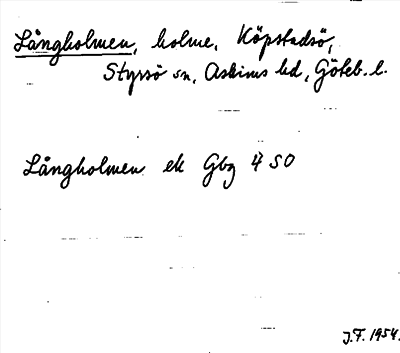 Långholmen, holme, Köpstadsö,
Styrsö sn, Askims hd, Göteb. l.
Långholmen ek Gbg 4 SO
J.F. 1954.